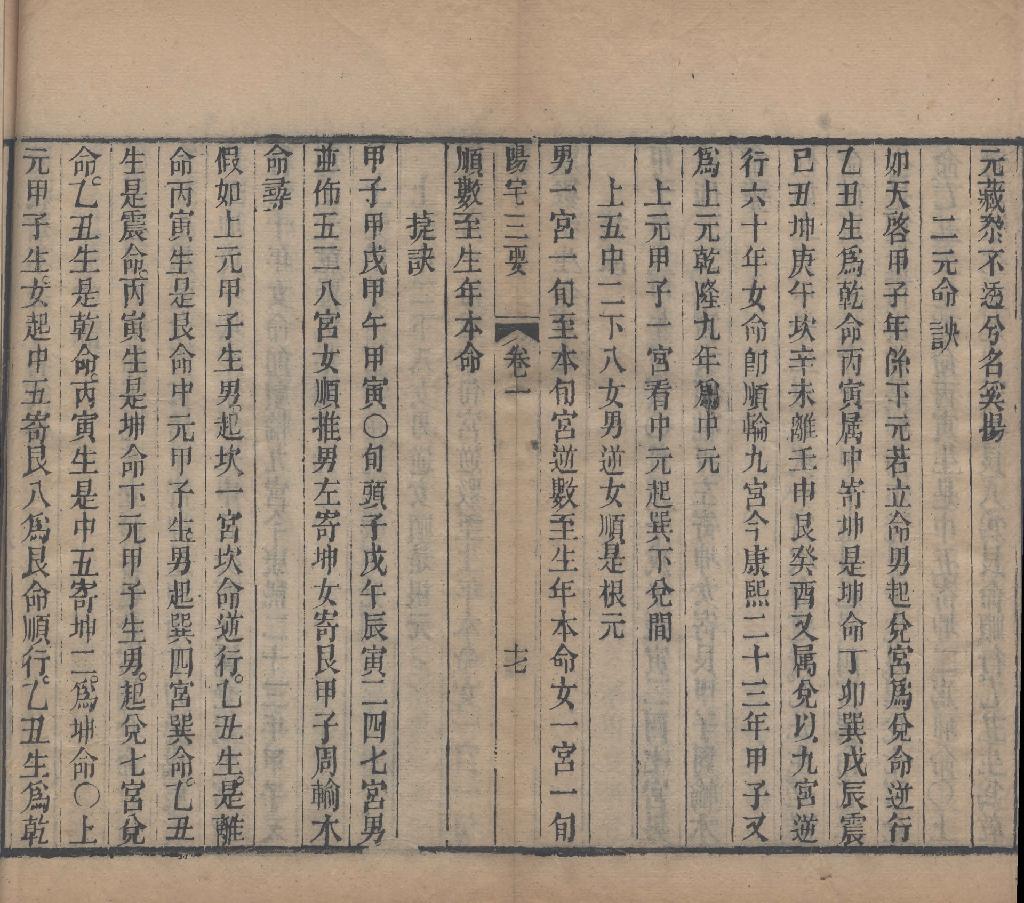 元藏祭不透兮名奚揚
二元命訣
如天啓甲子年係下元若立命男起兌宮爲兌命逆行
乙丑生爲乾命丙寅属中寄坤是坤命丁卯巽戊辰震
巳丑坤庚午坎辛未離壬申艮癸酉又属兌以九宮逆
行六十年女命卽順輪九宮今康熙二十三年甲子又
爲上元乾隆九年爲中元
上元甲子一宮看中元起巽下兌間
上五中二下八女男逆女順是根元
男一宮一旬至本旬宮逆數至生年本命女一宮一旬
陽宅三要
卷二
十七
順數至生年本命
㨗訣
甲子甲戌甲午甲寅〇旬頭子戌午辰寅二四七宮男
並佈五二八宮女順推男左寄坤女寄艮甲子周輸木
命尋
假如上元甲子生男起坎一宮坎命逆行乙丑生是離
命丙寅生是艮命中元甲子生男起巽四宮巽命乙丑
生是震命丙寅生是坤命下元甲子生男起兌七宮兌
命乙丑生是乾命丙寅生是中五寄坤二爲坤命〇上
元甲子生女起中五寄艮八爲艮命順行乙丑生爲乾